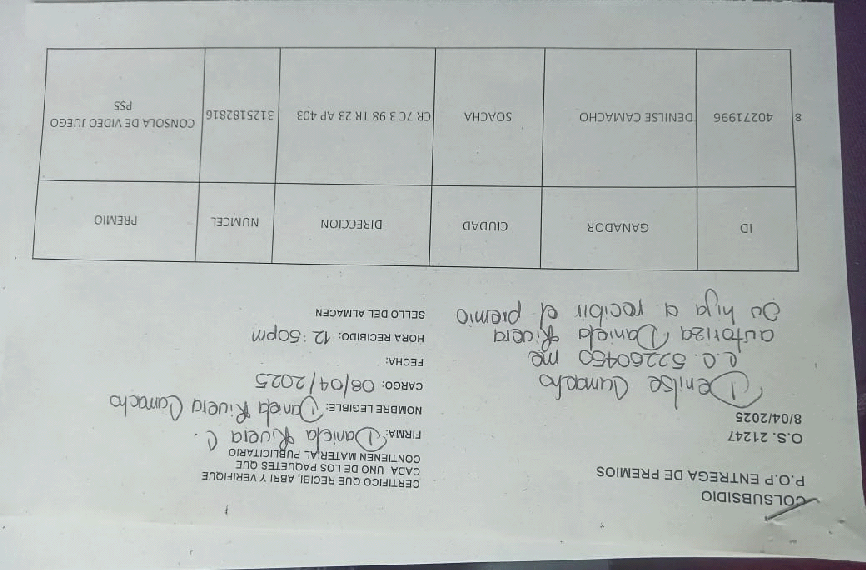 COLSUBSIDIO
P.O.P ENTREGA DE PREMIOS
O.S. 21247
8/04/2025
Denilse Camacho
c.c. 52260450 me
autoriza Daniela Rivera
su hija a recibir el premio
CERTIFICO QUE RECIBI, ABRI Y VERIFIQUE
CADA UNO DE LOS PAQUETES QUE
CONTIENEN MATERIAL PUBLICITARIO
FIRMA: Daniela Rivera C.
NOMBRE LEGIBLE: Daniela Rivera Camacho
CARGO: 08/04/2025
FECHA:
HORA RECIBIDO: 12:50pm
SELLO DEL ALMACEN
ID GANADOR CIUDAD DIRECCION NUMCEL PREMIO
8 40271996 DENILSE CAMACHO SOACHA CR 7C 3 98 TR 23 AP 403 3125182816 CONSOLA DE VIDEO JUEGO
PS5